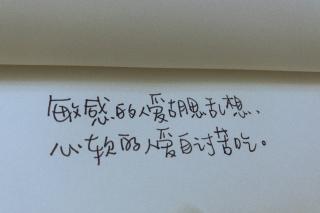 敏感的人爱胡思乱想、
心软的人爱自讨苦吃。